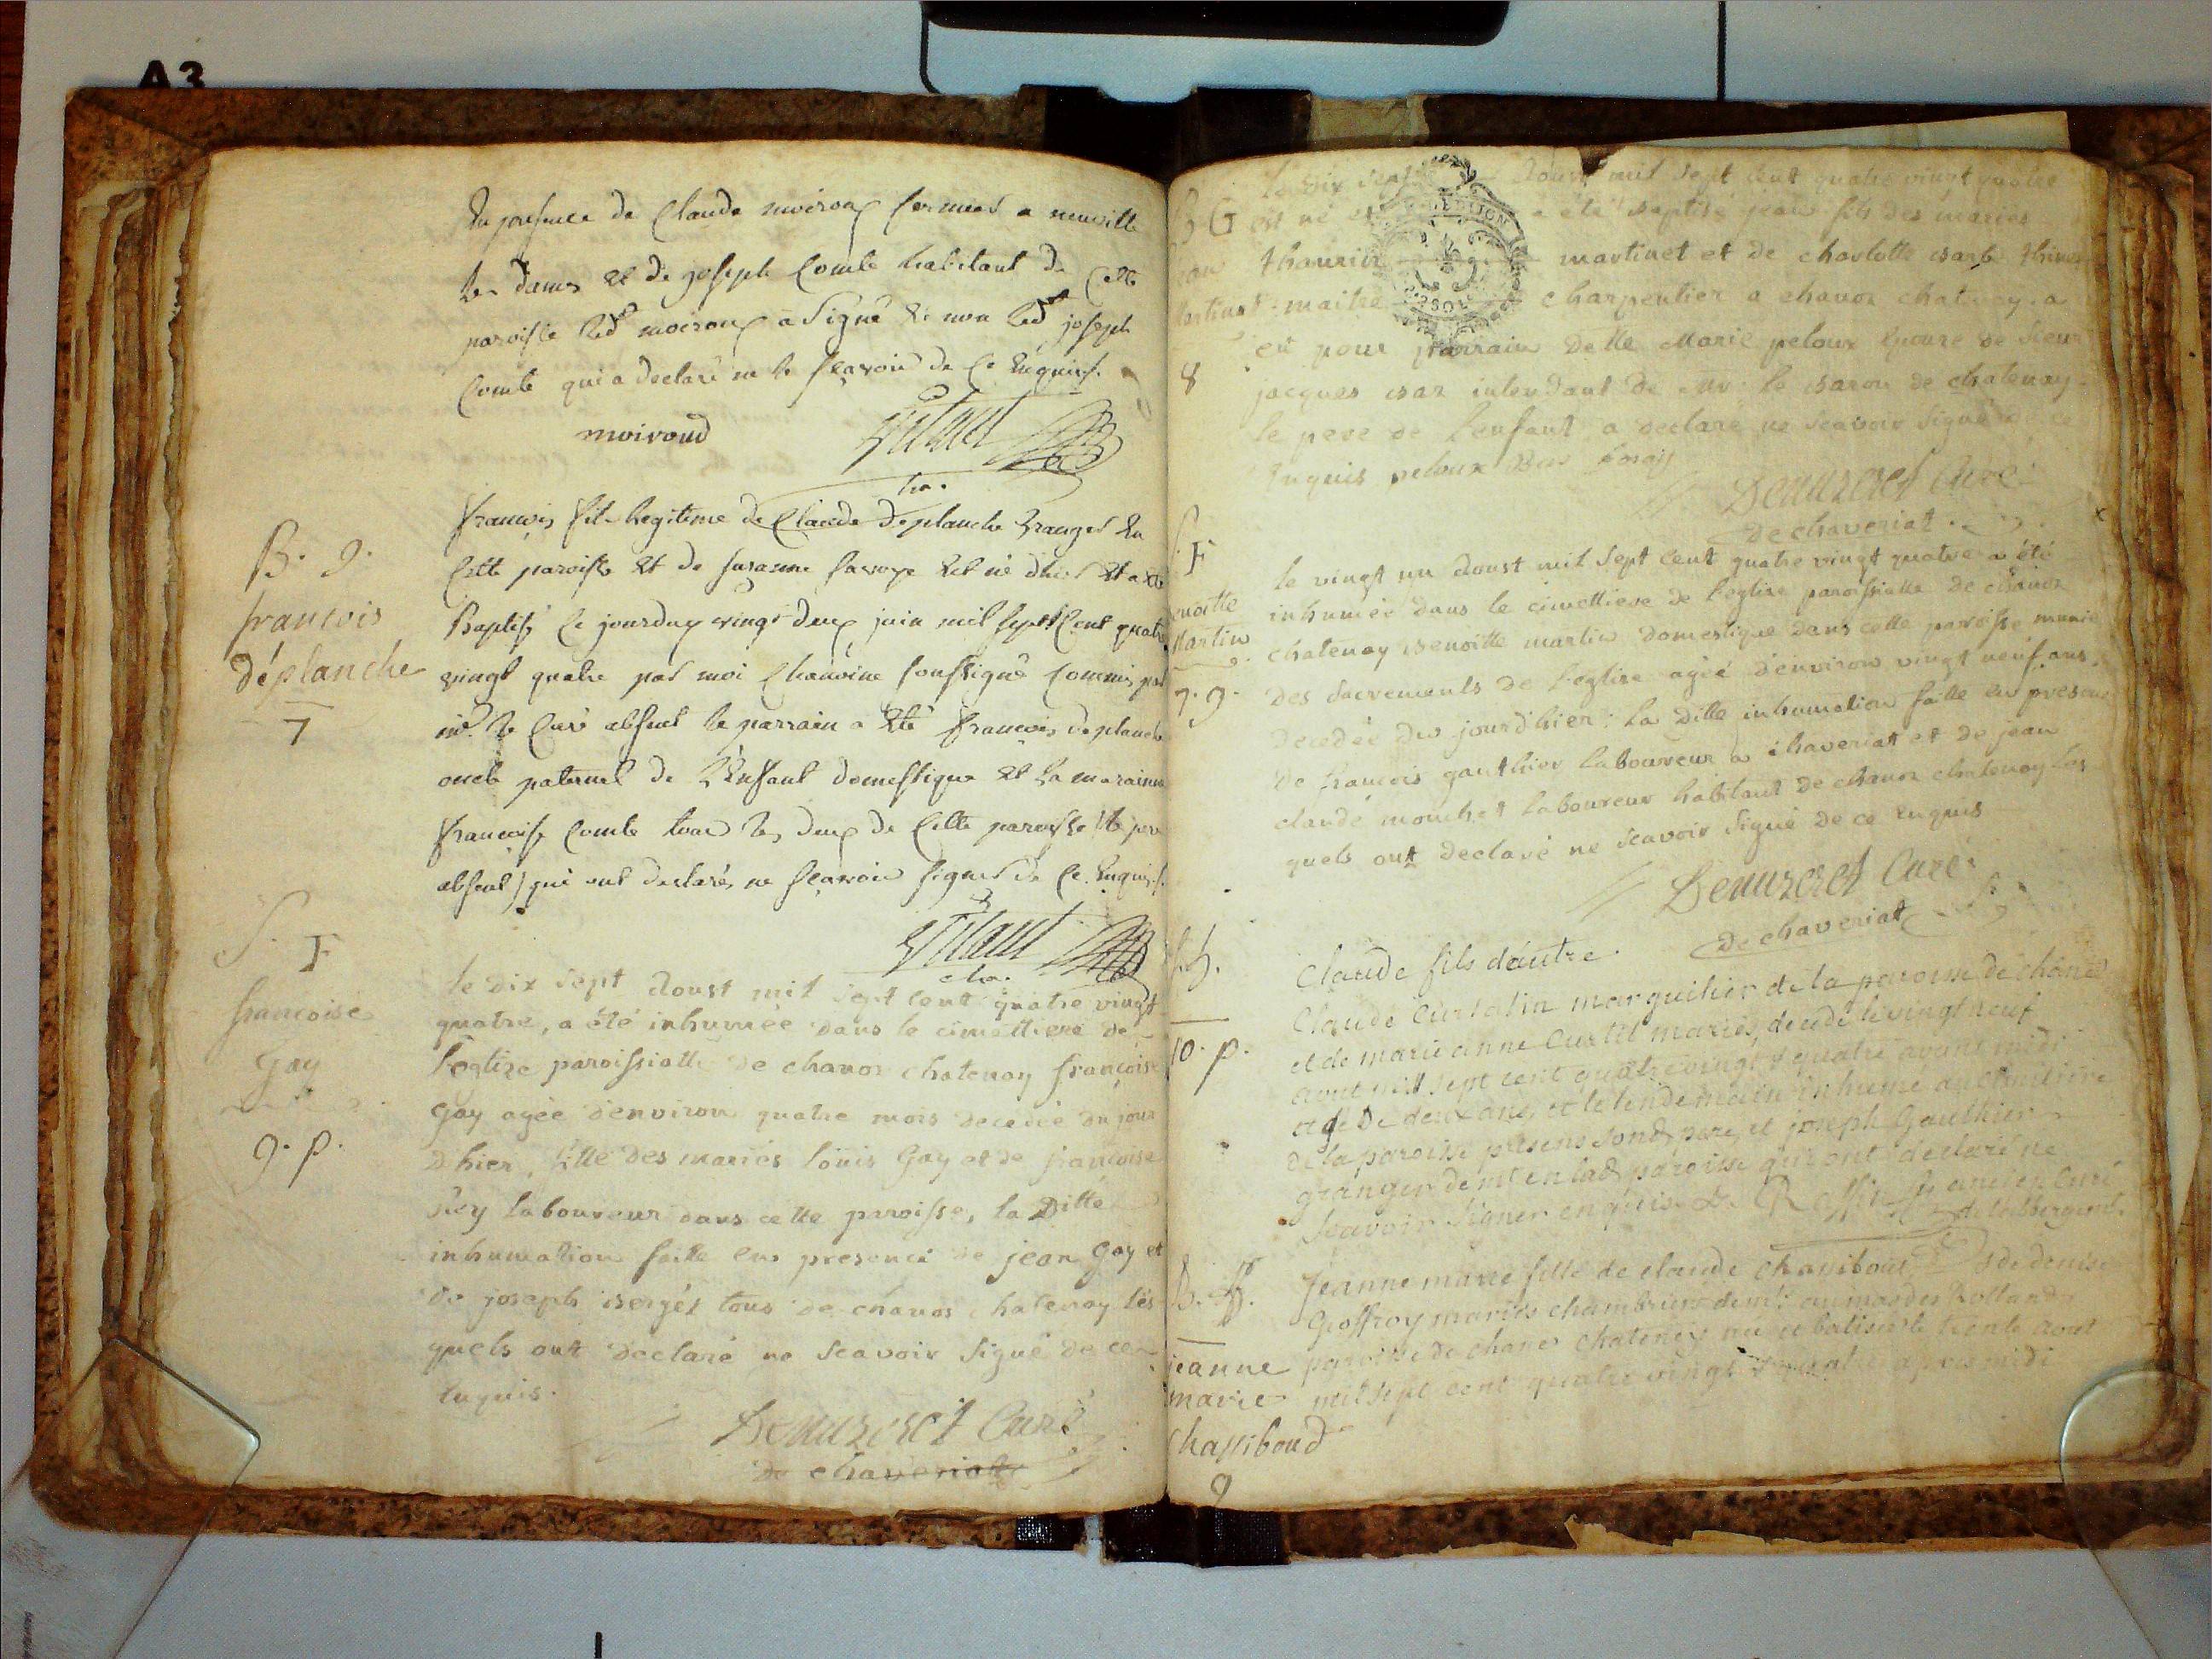 A3
En presence de Claude moiroux fermier a neuville
les dames et de joseph Comte habitant de Cette
paroisse led moiroux a Signé et non led joseph
Comte qui a declaré ne le sçavoir de Ce Enquis.
moiroud
cha.
B. g.
francois
déplanche
7
francois fils legitime de Claude Déplanche Granger En
Cette paroisse et de Susanne est né d'hier et a été
Baptisé Ce jourduy vingt deux juin mil sept Cent quatre
vingt quatre par moi Chanoine soussigné Commis par
mr. le Curé absent le parrain a Eté francois deplanche
oncle paternel de L'Enfant domestique et la maraine
francoise Comte tous les deux de Cette paroisse le pere
absent) qui ont declarés ne sçavoir signer de Ce Enquis.
cha.
S. F
francoise
Gay
9. p.
le Dix sept Aoust mil Sept Cent quatre vingt
quatre, a été inhumée dans le cimettiere de
l'eglize paroissialle de chanoz chatenay françoise
Gay agée d'environ quatre mois decedée du jour
d'hier, fille des mariés loüis Gay et de françoise
laboureur dans cette paroisse, la Ditte
inhumation faitte en presence de jean Gay et
de joseph tous de chanoz chatenay les
quels ont declaré ne Scavoir Signé de ce
Enquis.
Curé
de chaveriat
B G
8
le dix sept Aoust mil Sept Cent quatre vingt quatre
est né et a été baptisé jean fils des mariés
martinet et de charlotte
maitre charpentier a chanoz chatenay. a
eû pour parrain Delle Marie peloux Epouze de Sieur
jacques intendant de Mr. le baron de chatenay
le pere de l'enfant a declaré ne Scavoir Signé de ce
Enquis peloux
Curé
de chaveriat.
S. F
Martin
7. g.
le vingt un Aoust mil Sept Cent quatre vingt quatre a été
inhumée dans le cimettiere de l'eglize paroissialle de chanoz
chatenay benoitte martin domestique dans cette paroisse munie
des Sacrements de l'eglize agée d'environ vingt neuf ans
decedée du jourd'hier: la Ditte inhumation faitte en presence
de francois gauthier laboureur a chaveriat et de jean
claude mouchet laboureur habitant de chanoz chatenay les
quels ont declaré ne Scavoir Signé de ce Enquis
Curé
de chaveriat
10. p.
Claude fils d'autre
Claude marguilier de la paroisse de chanos
et de marie anne Curtil mariés, décédé le vingt neuf
aout mil sept cent quatre vingt quatre avant midi
agé de deux ans, et le lendemain inhumé au cimetiere
de la paroisse présens sond. pere, et joseph Gauthier
granger demt en lad. paroisse qui ont declaré ne
scavoir signer enquis. ancien Curé
B. ff.
jeanne
marie
Chassiboud
9
Jeanne marie fille de claude Chassiboud et de denise
Geoffroy mariés demt. au mas des Rollands
paroisse de chanos chatenay née et batisée le trente aout
mil sept cent quatre vingt quatre apres midi